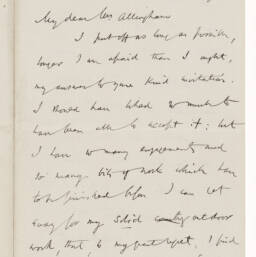 My dear Mrs Allingham
I put off as long as possible,
longer I am afraid than I ought,
my answer to your kind invitation.
I should have liked so much to
have been able to accept it: but
I have so many engagements and
so many bits of work which have
to be finished before I can get
away for my solid outdoor
work, that to my great regret, I find